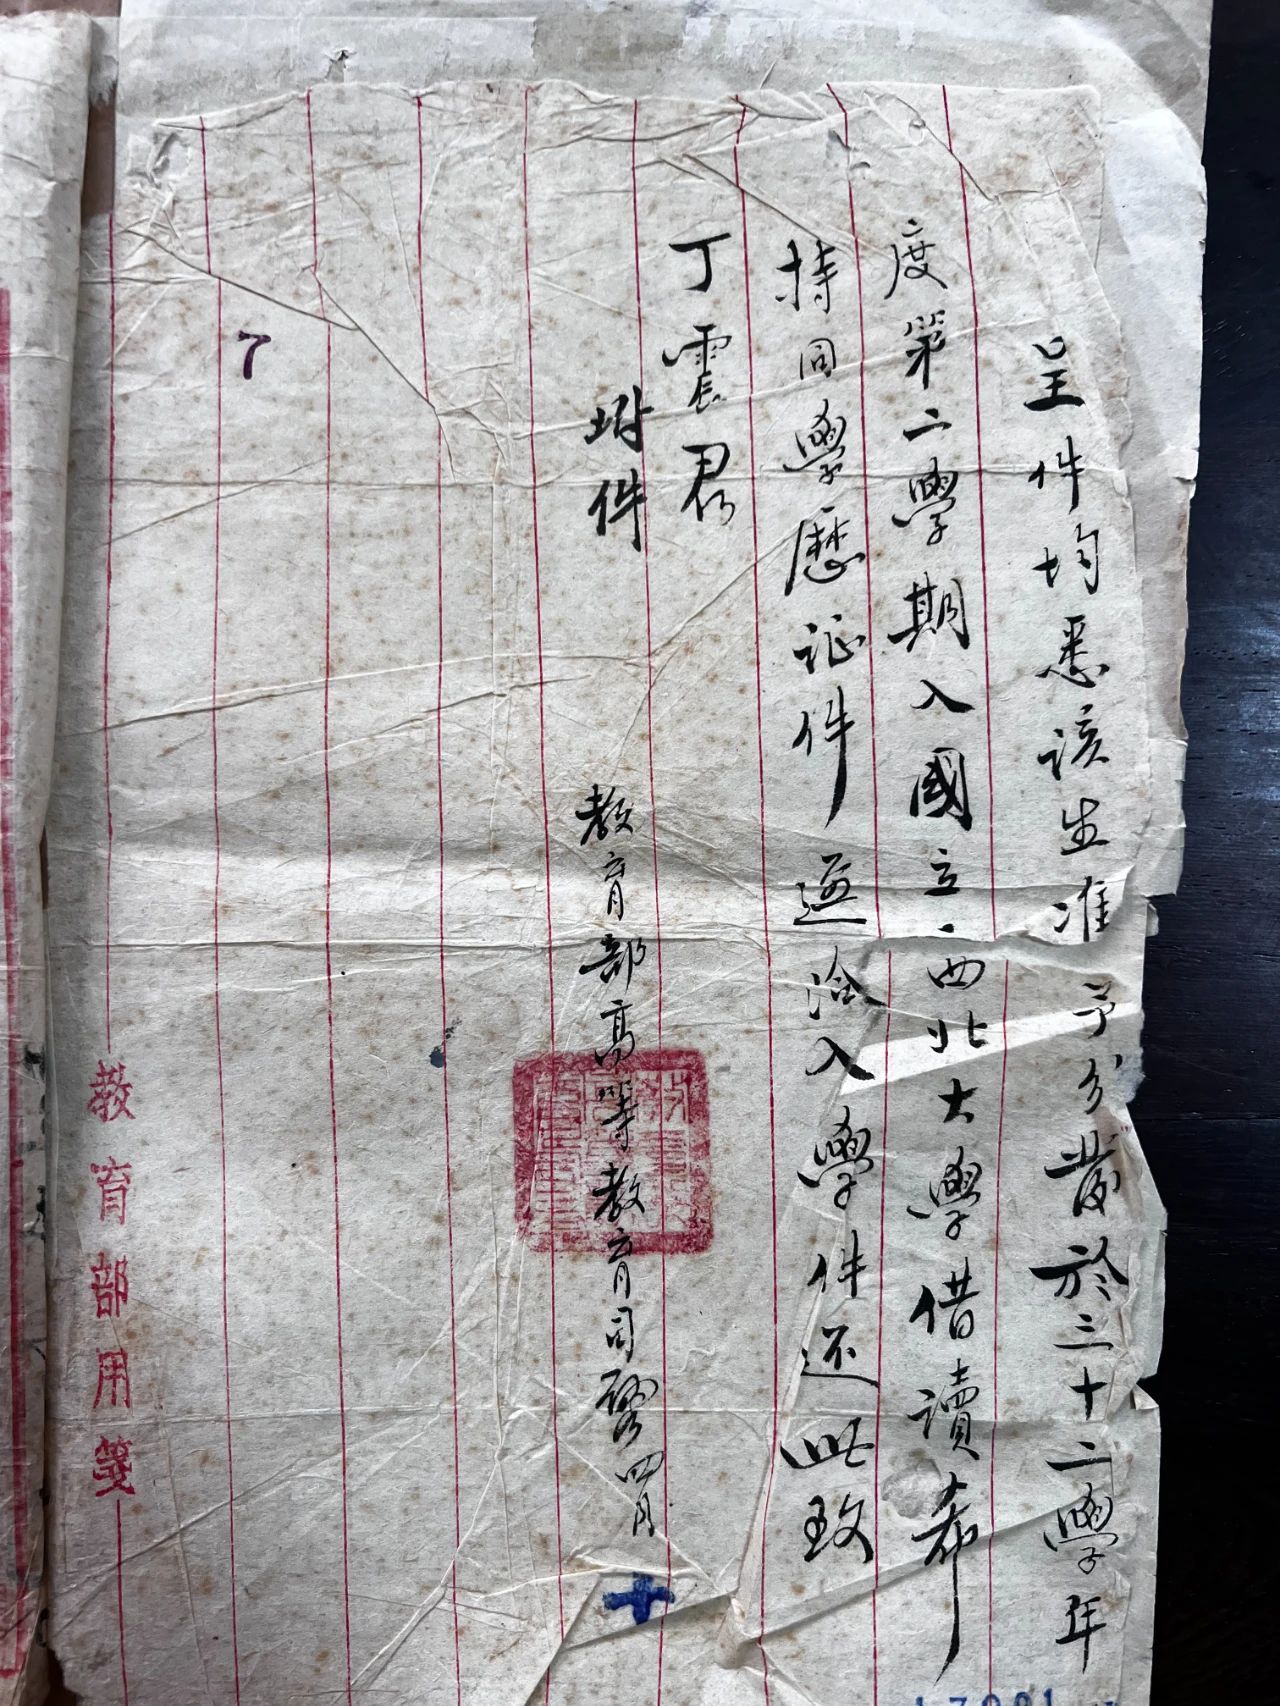 呈件均悉該生准予分發於三十二學年
度第二學期入國立西北大學借讀希
持同學歷证件逕洽入學件还此致
丁震君
坿件
教育部高等教育司啓 四月
十
7
教育部用箋